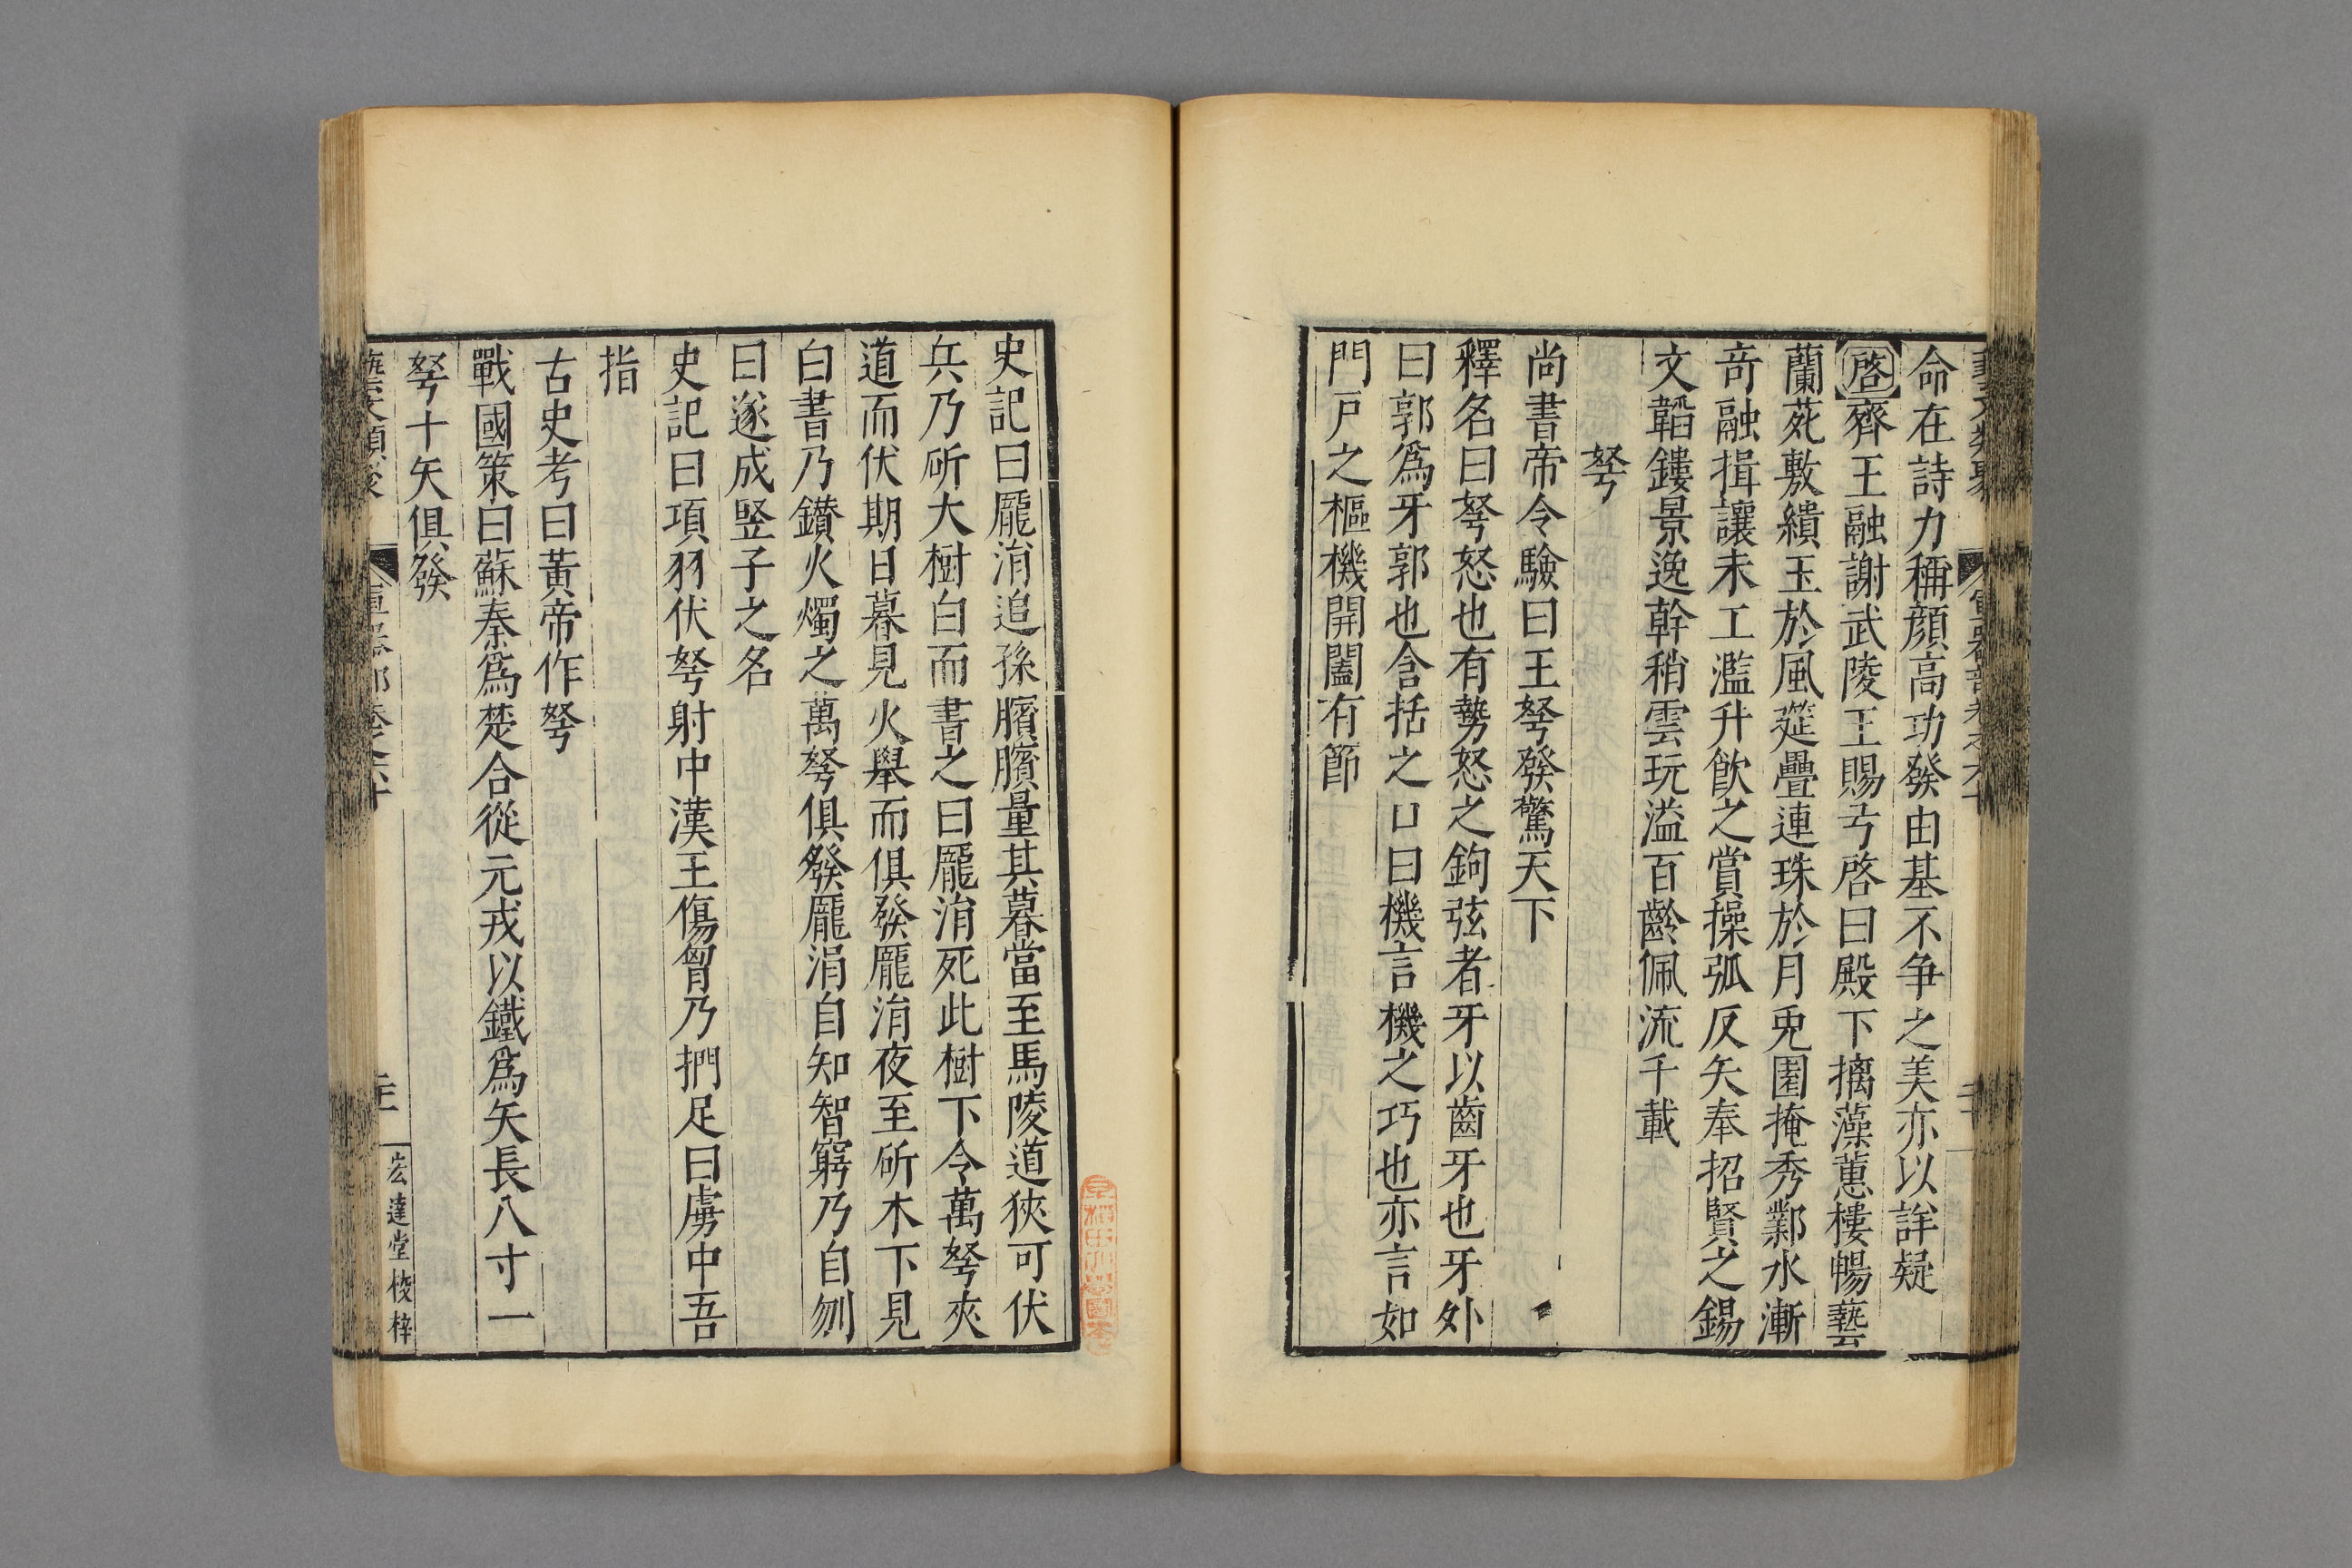 命在詩力稱顏高功發由基不爭之美亦以詳疑
啓齊王融謝武陵王賜弓啓曰殿下摛藻蕙樓暢藝
蘭苑敷繢玉於風筵疊連珠於月兎園掩秀鄴水漸
竒融揖讓未工濫升飲之賞操弧反矢奉招賢之錫
文韜鏤景逸幹稍雲玩溢百齡佩流千載
弩
尚書帝令驗曰王弩發驚天下
釋名曰弩怒也有勢怒之鉤弦者牙以齒牙也牙外
曰郭爲牙郭也含括之口曰機言機之巧也亦言如
門戸之樞機開闔有節
史記曰龎涓追孫臏臏量其暮當至馬陵道狹可伏
兵乃斫大樹白而書之曰龎涓死此樹下令萬弩夾
道而伏期日暮見火舉而俱發龎涓夜至斫木下見
白書乃鑚火燭之萬弩俱發龎涓自知智窮乃自刎
曰遂成竪子之名
史記曰項羽伏弩射中漢王傷曾乃捫足曰虜中吾
指
古史考曰黃帝作弩
戰國策曰蘇秦爲楚合從元戎以鐵爲矢長八寸一
弩十矢俱發
宏達堂校梓